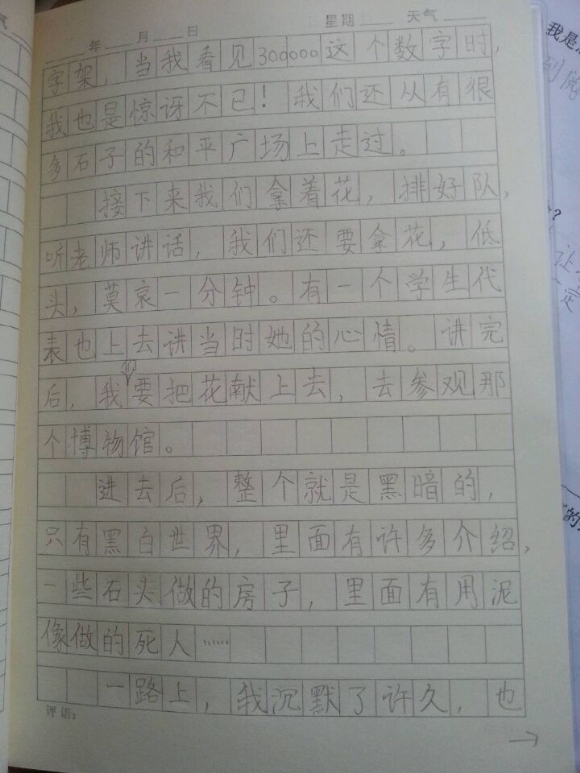 年 月 日 星期 天气
字架，当我看见300000这个数字时，
我也是惊讶不已！我们还从有很
多石子的和平广场上走过。
接下来我们拿着花，排好队，
听老师讲话，我们还要拿花，低
头，莫哀一分钟。有一个学生代
表也上去讲当时她的心情。讲完
后，我们要把花献上去，去参观那
个博物馆。
进去后，整个就是黑暗的，
只有黑白世界，里面有许多介绍，
一些石头做的房子，里面有用泥
像做的死人……
一路上，我沉默了许久，也
评语：